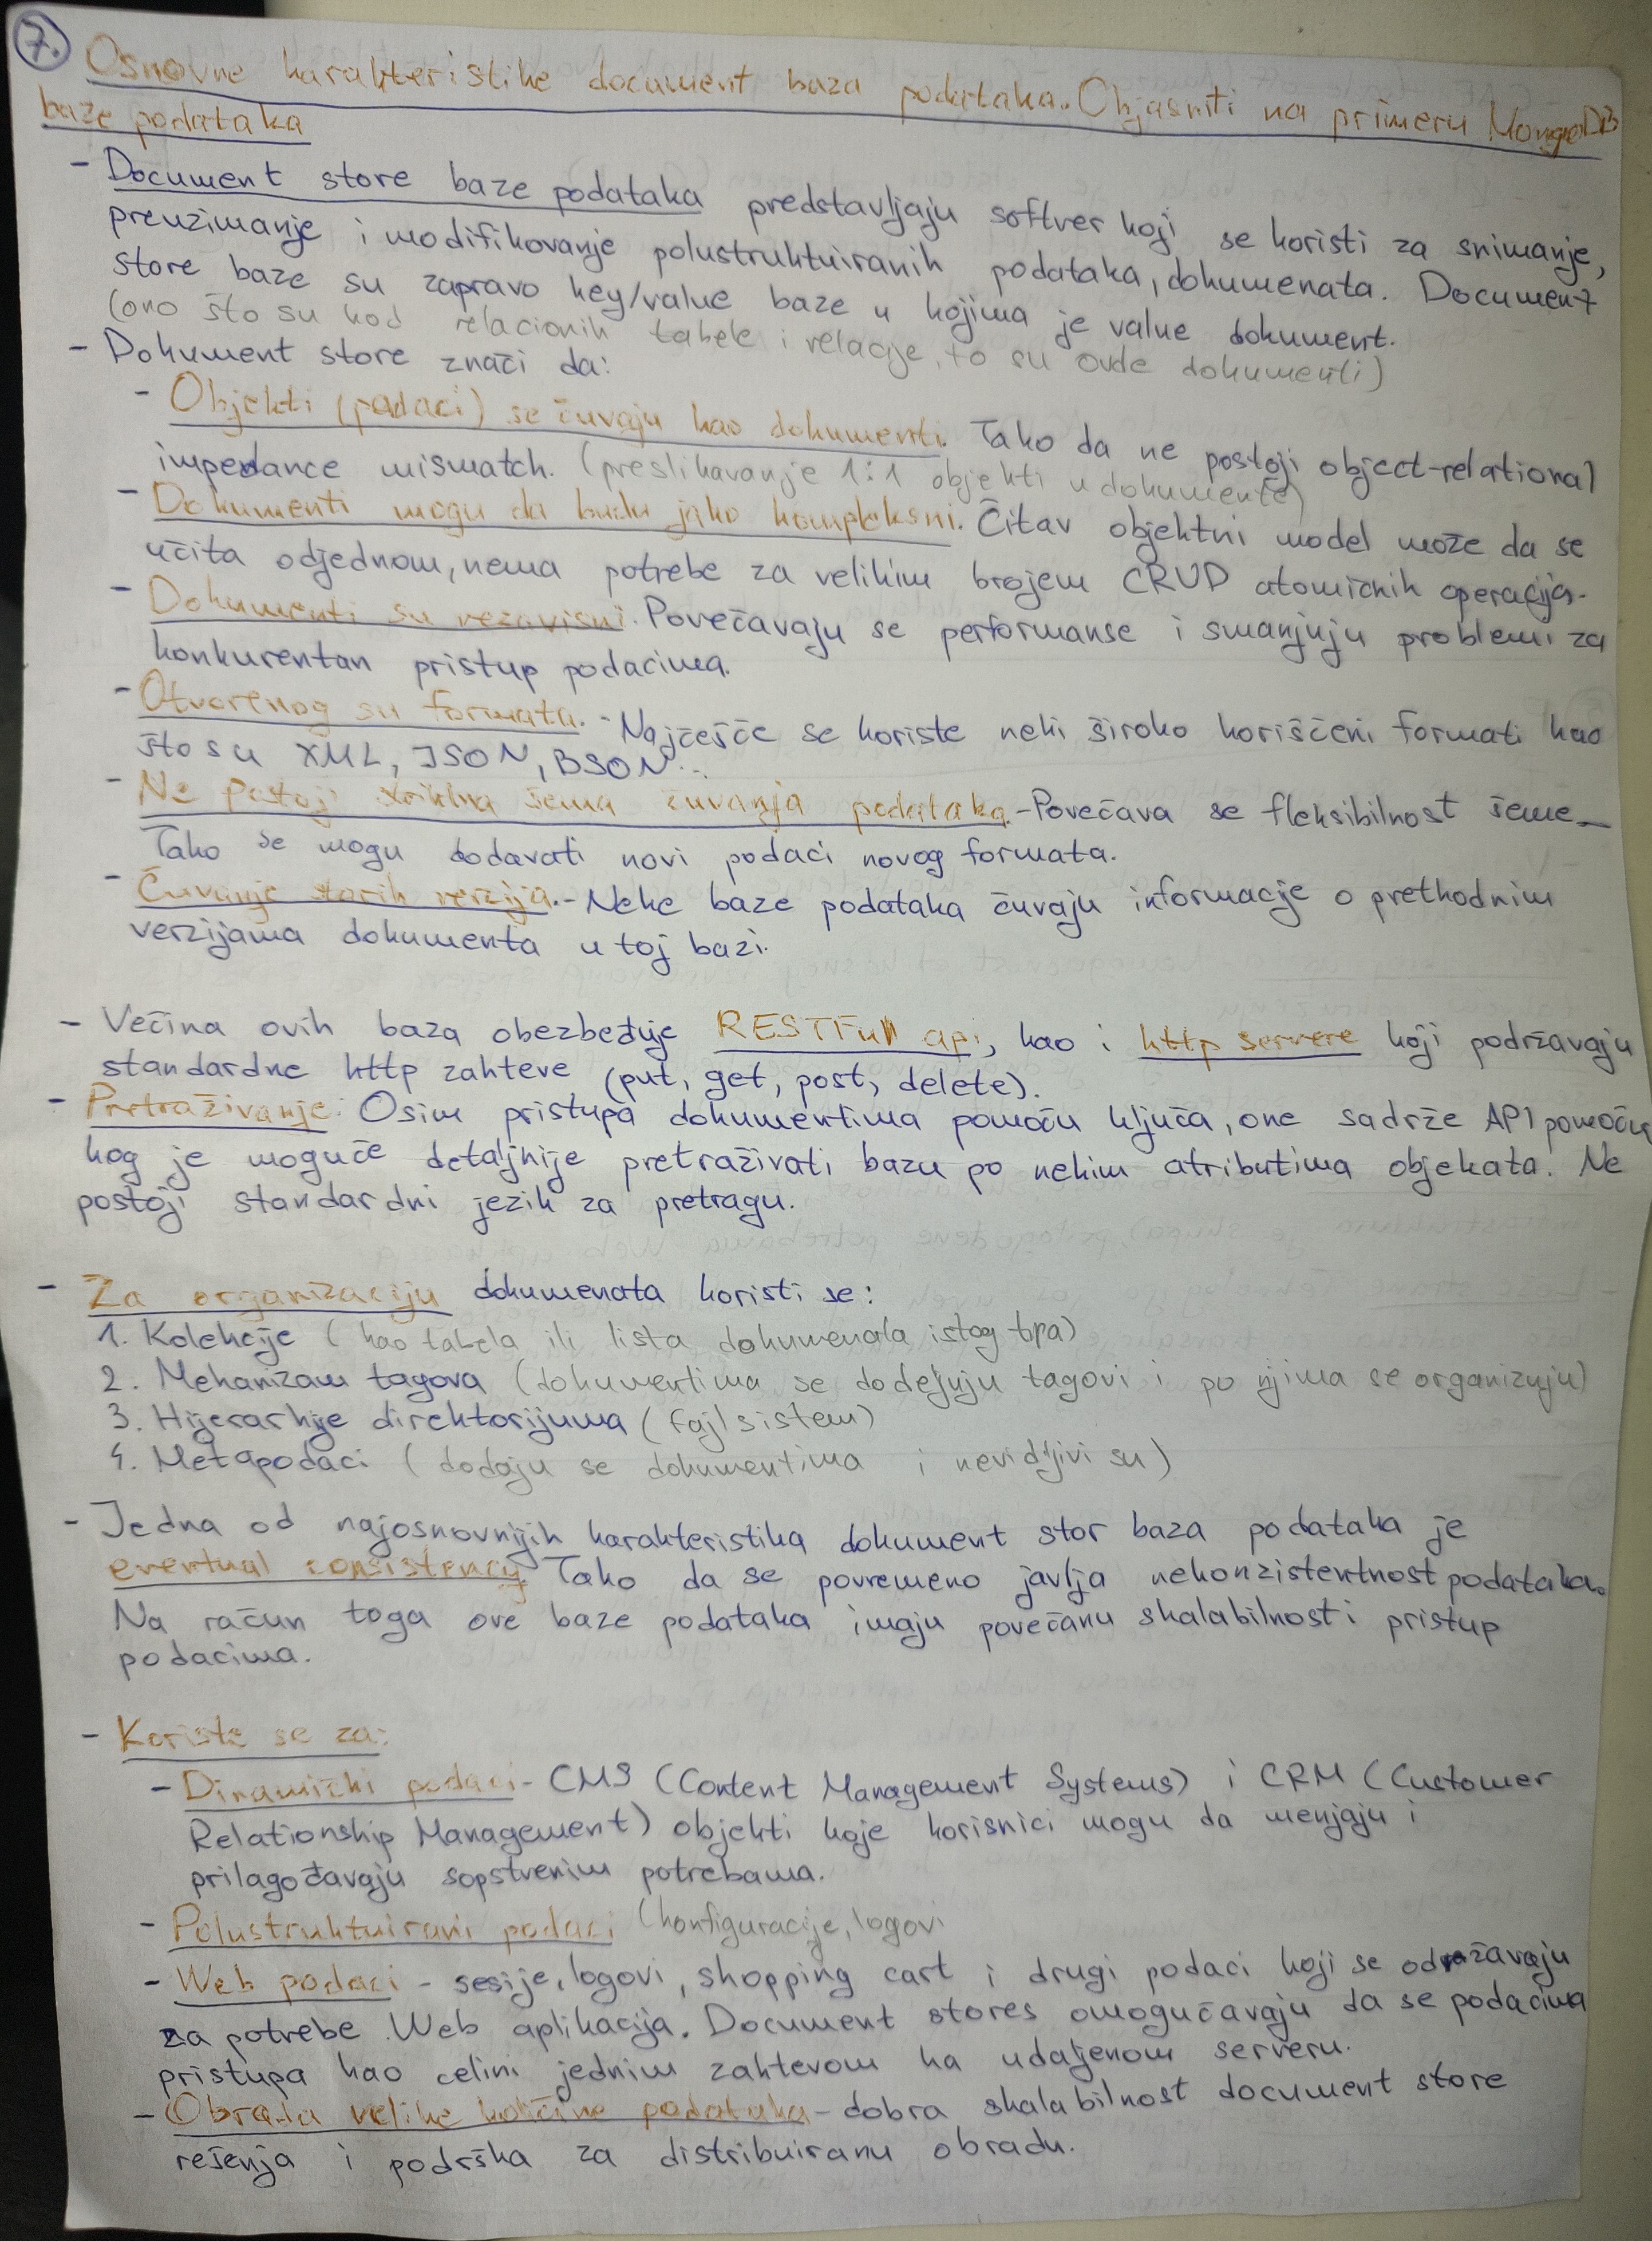 7.
Osnovne karakteristike document baza podataka. Objasniti na primeru MongoDB
baze podataka
- Document store baze podataka predstavljaju softver koji se koristi za snimanje,
preuzimanje i modifikovanje polustruktuiranih podataka, dokumenata. Document
store baze su zapravo key/value baze u kojima je value dokument.
(ono što su kod relacionih tabele i relacije, to su ovde dokumenti)
- Dokument store znači da:
- Objekti (podaci) se čuvaju kao dokumenti. Tako da ne postoji object-relational
impedance mismatch. (preslikavanje 1:1 objekti u dokumente)
- Dokumenti mogu da budu jako kompleksni. Čitav objektni model može da se
učita odjednom, nema potrebe za velikim brojem CRUD atomičnih operacija.
- Dokumenti su nezavisni. Povećavaju se performanse i smanjuju problemi za
konkurentan pristup podacima.
- Otvorenog su formata. - Najčešće se koriste neki široko korišćeni formati kao
što su XML, JSON, BSON...
- Ne postoji striktna šema čuvanja podataka. - Povećava se fleksibilnost šeme.
Tako se mogu dodavati novi podaci novog formata.
- Čuvanje starih verzija. - Neke baze podataka čuvaju informacije o prethodnim
verzijama dokumenta u toj bazi.
- Većina ovih baza obezbeđuje RESTFull api, kao i http servere koji podržavaju
standardne http zahteve (put, get, post, delete).
- Pretraživanje: Osim pristupa dokumentima pomoću ključa, one sadrže API pomoću
kog je moguće detaljnije pretraživati bazu po nekim atributima objekata. Ne
postoji standardni jezik za pretragu.
- Za organizaciju dokumenata koristi se:
1. Kolekcije (kao tabela ili lista dokumenata istog tipa)
2. Mehanizam tagova (dokumentima se dodeljuju tagovi i po njima se organizuju)
3. Hijerarhije direktorijuma (fajl sistem)
4. Metapodaci (dodaju se dokumentima i nevidljivi su)
- Jedna od najosnovnijih karakteristika dokument stor baza podataka je
eventual consistency. Tako da se povremeno javlja nekonzistentnost podataka.
Na račun toga ove baze podataka imaju povećanu skalabilnost i pristup
podacima.
- Koriste se za:
- Dinamički podaci - CMS (Content Management Systems) i CRM (Customer
Relationship Management) objekti koje korisnici mogu da menjaju i
prilagođavaju sopstvenim potrebama.
- Polustruktuirani podaci (konfiguracije, logovi
- Web podaci - sesije, logovi, shopping cart i drugi podaci koji se održavaju
za potrebe Web aplikacija. Document stores omogućavaju da se podacima
pristupa kao celini jednim zahtevom ka udaljenom serveru.
- Obrada velike količine podataka - dobra skalabilnost document store
rešenja i podrška za distribuiranu obradu.